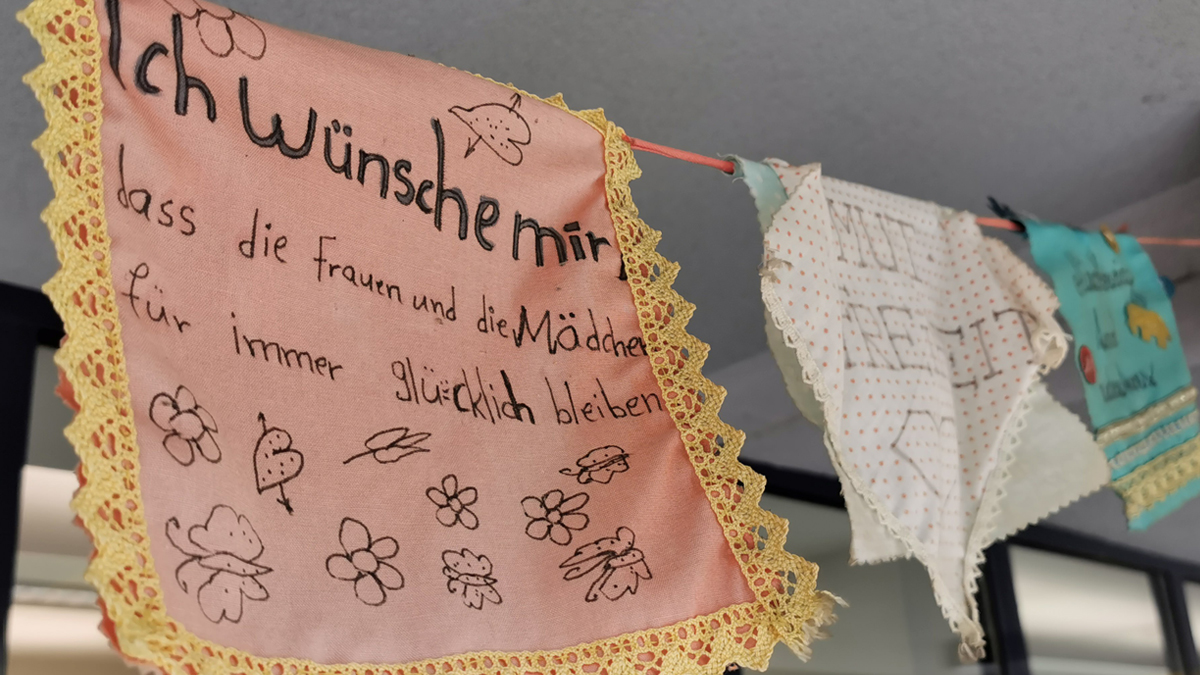 Ich wünsche mir,
dass die Frauen und die Mädchen
für immer glücklich bleiben
MUT.